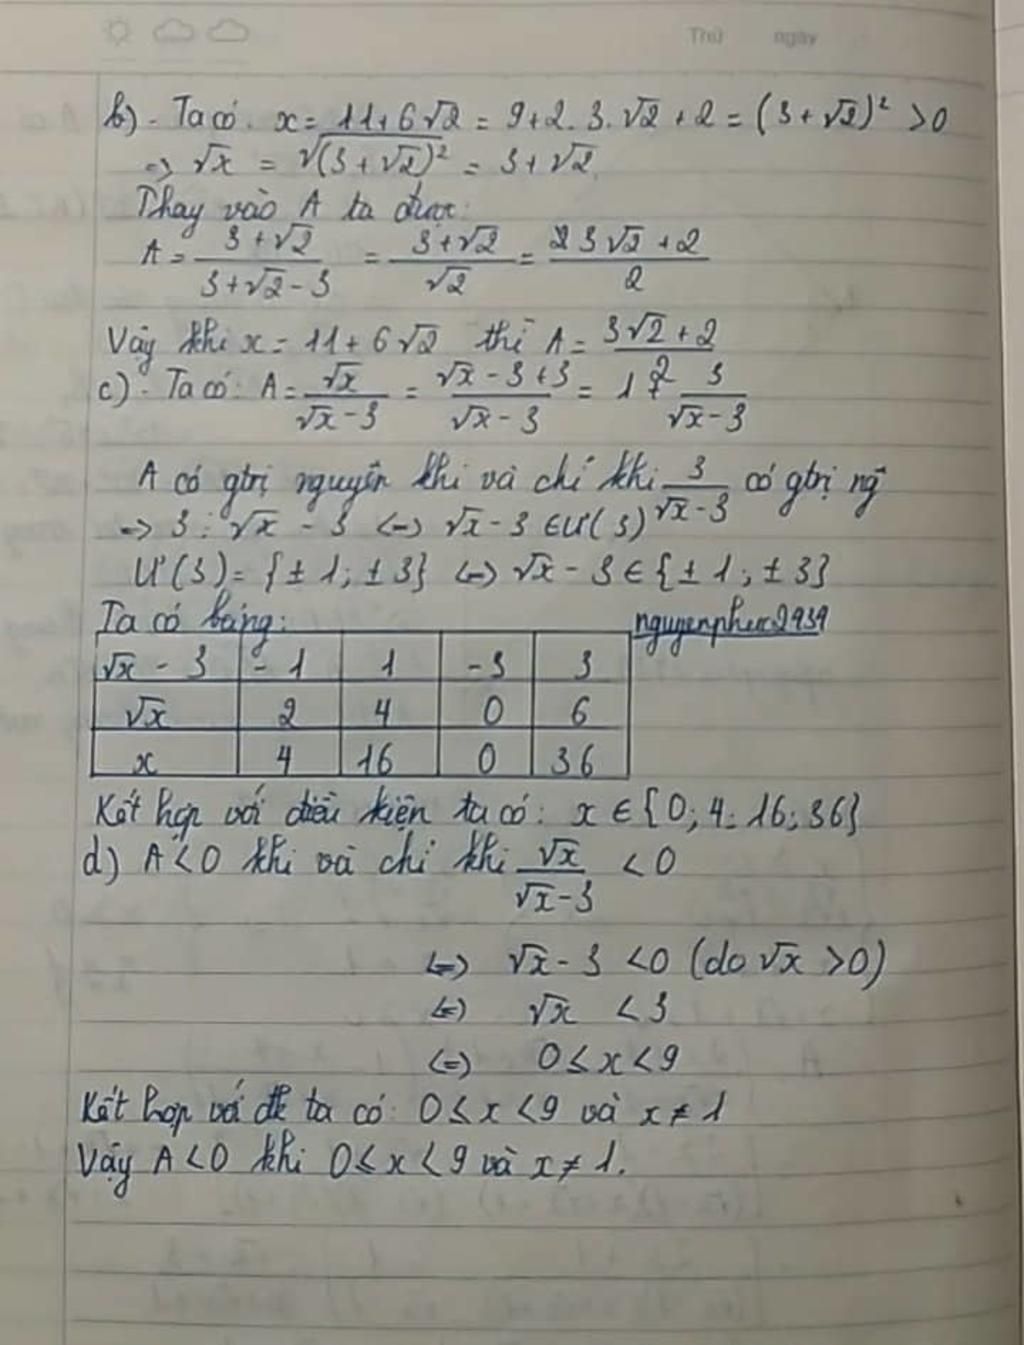 Thứ ngày
b). Ta có. x = 11 + 6√2 = 9 + 2.3.√2 + 2 = (3 + √2)² > 0
=> √x = √(3 + √2)² = 3 + √2
Thay vào A ta được:
A = (3 + √2)/(3 + √2 - 3) = (3 + √2)/√2 = (3√2 + 2)/2
Vậy khi x = 11 + 6√2 thì A = (3√2 + 2)/2
c). Ta có: A = √x/(√x - 3) = (√x - 3 + 3)/(√x - 3) = 1 + 3/(√x - 3)
A có gtrị nguyên khi và chỉ khi 3/(√x - 3) có gtrị ng
=> 3 ⋮ √x - 3 <=> √x - 3 ∈ Ư(3)
Ư(3) = {± 1; ± 3} <=> √x - 3 ∈ {± 1; ± 3}
Ta có bảng: nguyenphuc2939
√x - 3 -1 1 -3 3
√x 2 4 0 6
x 4 16 0 36
Kết hợp với điều kiện ta có: x ∈ {0; 4; 16; 36}
d) A < 0 khi và chỉ khi √x/(√x - 3) < 0
<=> √x - 3 < 0 (do √x > 0)
<=> √x < 3
<=> 0 ≤ x < 9
Kết hợp với đề ta có: 0 ≤ x < 9 và x ≠ 1
Vậy A < 0 khi 0 ≤ x < 9 và x ≠ 1.